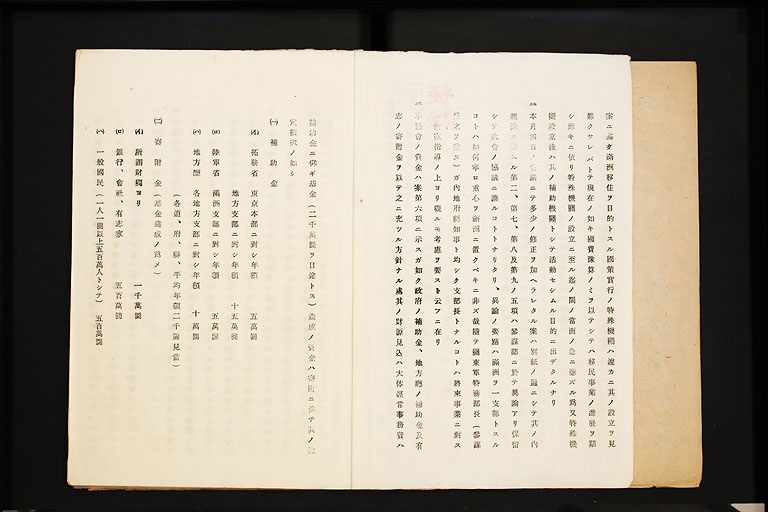 案ニ基タ滿洲移住ヲ目的トスル國策實行ノ特殊機關ハ速カニ其ノ設立ヲ見
難クサレバトテ現在ノ如キ國費豫算ノミヲ以テシテハ移民事業ノ進展ヲ期
シ難キニ依リ特殊機關ノ設立ニ至ル迄ノ間ノ當面ノ急ニ應ズル爲又特殊機
關設立後ハ其ノ補助機關トシテ活動セシムル目的ニ出デタルナリ
本月四日ノ會議ニテ多少ノ修正ヲ加ヘラレタル案ハ別紙ノ通ニシテ其ノ內
第二、第七、第八及第九ノ五項ハ參謀部ニ於テ異論アリ保留
シテ次會ノ協議ニ讓ルコトトナリタリ、異論ノ要點ハ滿洲ヲ一支部トスル
コトハ如何寧ロ重心ヲ滿洲ニ置クベキニ非ズ哉隨テ關東軍特務部長(參謀
ガ內地府縣知事ト均シク支部長トナルコトハ將來事業ニ對ス
指導ノ上ヨリ觀ルモ考慮ヲ要スト云フニ在リ
本協會ノ資金ハ案第六項ニ示スガ如ク政府ノ補助金、地方廳ノ補助金及有
志ノ寄附金ヲ以テ之ニ充ツル方針ナル處其ノ財源見込ハ大体經常事務費ハ
補助金ニ仰ギ基金(二千萬圓ヲ目途トス)造成ノ資金ハ寄附ニ依テ其ノ
額次ノ如シ
(一) 補助金
(イ) 拓務省 東京本部ニ對シ年額 五萬圓
地方支部ニ對シ年額 十五萬圓
(ロ) 陸軍省 滿洲支部ニ對シ年額 五萬圓
(ハ) 地方廳 各地方支部ニ對シ年額 十萬圓
(各道、府、縣、平均年額二千圓見當)
(二) 寄附金(基金造成ノ爲メ)
(イ) 所謂財閥ヨリ 一千萬圓
(ロ) 銀行、會社、有志家 五百萬圓
(ハ) 一般國民(一人一圓以上五百萬人トシテ) 五百萬圓